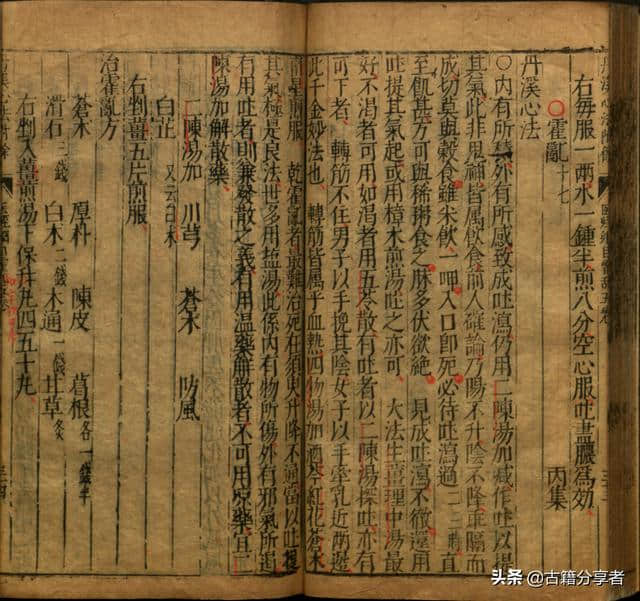 右每服一兩水一鍾半煎八分空心服吐盡膿爲効
○霍亂十七 丙集
丹溪心法
○内有所積外有所感致成吐瀉仍用二陳湯加減作吐以提
其氣此非鬼神皆属飲食前人確論乃陽不升陰不降乖隔而
成切莫與穀食雖米飲一呷入口即死必待吐瀉過二三時直
至飢甚方可與稀粥食之脉多伏欲絶 見成吐瀉不徹還用
吐提其氣起或用樟木煎湯吐之亦可 大法生薑理中湯最
好不渴者可用如渴者用五苓散有吐者以二陳湯探吐亦有
可下者 轉筋不住男子以手挽其陰女子以手牽乳近兩邊
此千金妙法也 轉筋皆属乎血熱四物湯加酒芩紅花蒼朮
南星煎服 乾霍亂者最難治死在須臾升降不通當以吐提
其氣極是良法世多用盐湯此係内有物所傷外有邪氣所遏
有用吐者則兼發散之義有用温藥解散者不可用凉藥宜二
陳湯加解散藥
二陳湯加 川芎 蒼朮 防風
白芷 又云白朮
右剉薑五片煎服
治霍亂方
蒼朮 厚朴 陳皮 葛根各一錢半
滑石三錢 白朮二錢 木通一錢 甘草炙
右剉入薑煎湯下保和丸四五十丸
头条 @古籍分享者